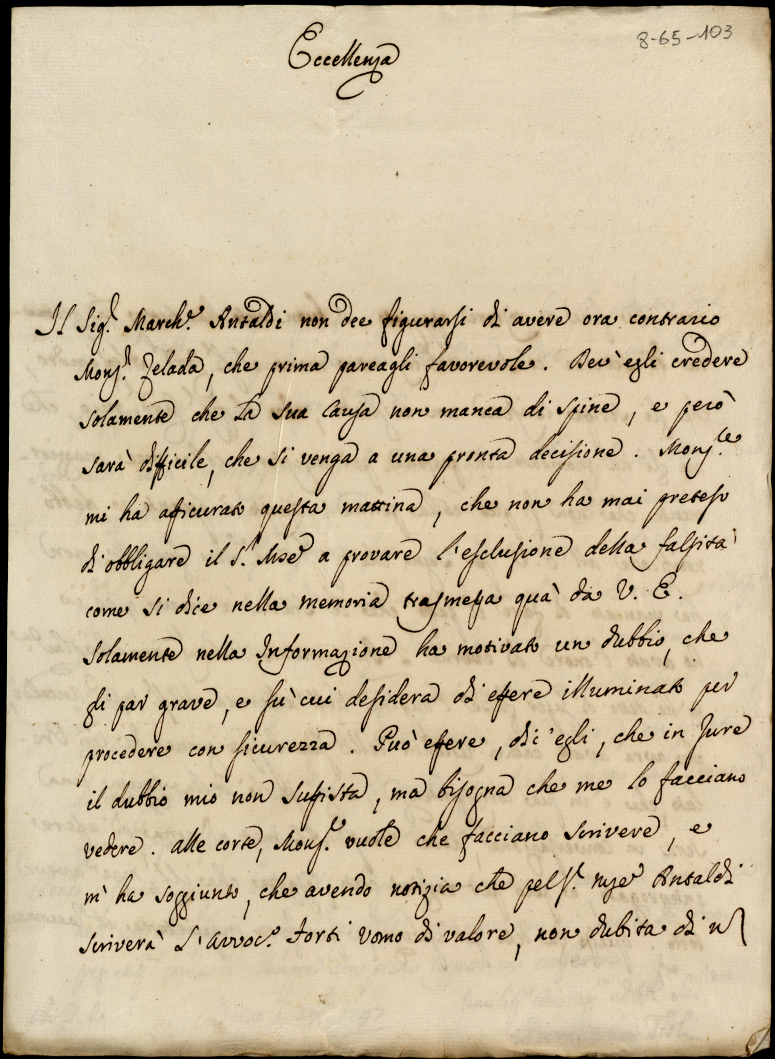 8-65-103
Eccellenza
Il Sig.r March.e Antaldi non dee figurarsi di avere ora contrario
Mons.r Zelada, che prima pareagli favorevole. Dev'egli credere
solamente che la sua causa non manca di spine, e però
sarà difficile, che si venga a una pronta decisione. Mons.re
mi ha assicurato questa mattina, che non ha mai preteso
di obbligare il S.r Mse a provare l'esclusione della falsità
come si dice nella memoria trasmessa quà da V. E.
Solamente nella Informazione ha motivato un dubbio, che
gli par grave, e sù cui desidera di essere illuminato per
procedere con sicurezza. Può essere, dic'egli, che in Jure
il dubbio mio non sussista, ma bisogna che me lo facciano
vedere. Alle corte, Mons.r vuole che facciano scrivere, e
m'ha soggiunto, che avendo notizia che pel S.r Mse Antaldi
scriverà l'Avvoc.o Forti Uomo di valore, non dubita di